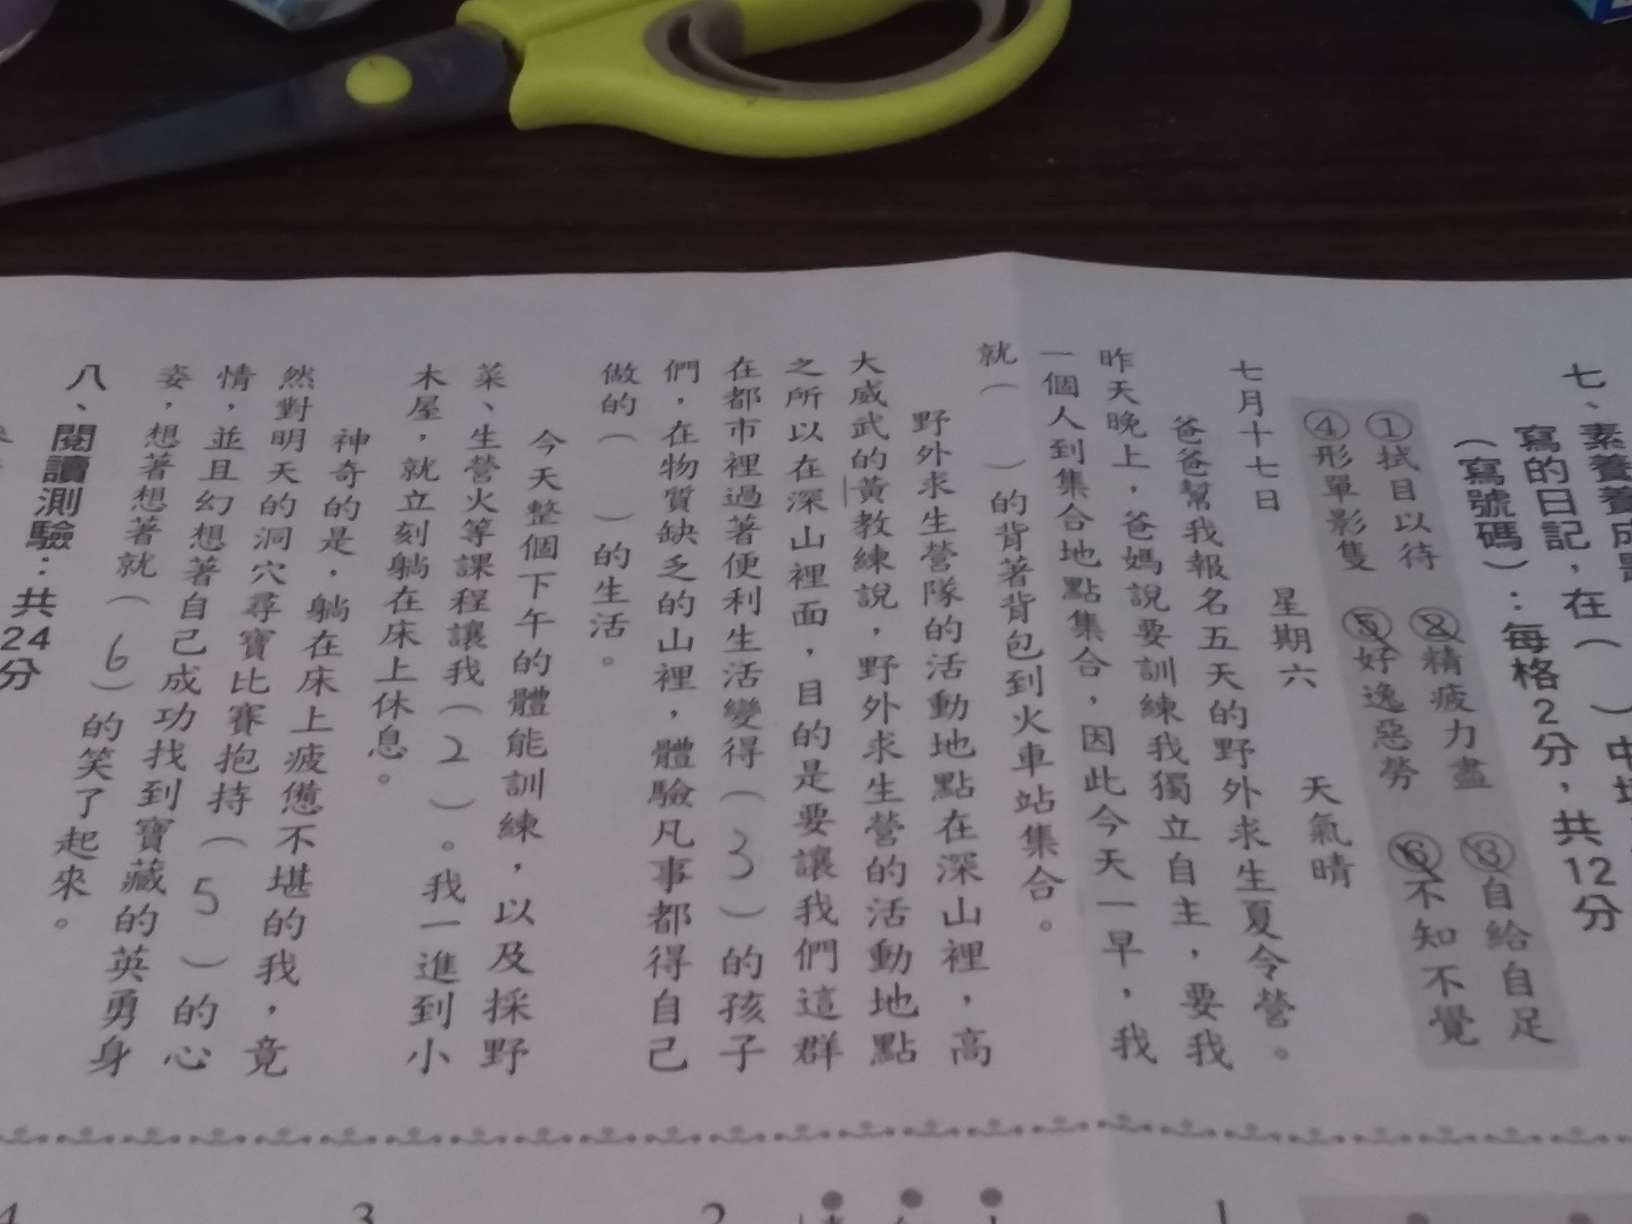 七、素養養成
寫的日記，在（　）中
（寫號碼）：每格2分，共12分
①拭目以待　②精疲力盡　③自給自足
④形單影隻　⑤好逸惡勞　⑥不知不覺
七月十七日　星期六　天氣晴
爸爸幫我報名五天的野外求生夏令營。
昨天晚上，爸媽說要訓練我獨立自主，要我
一個人到集合地點集合，因此今天一早，我
就（　）的背著背包到火車站集合。
野外求生營隊的活動地點在深山裡，高
大威武的黃教練說，野外求生營的活動地點
之所以在深山裡面，目的是要讓我們這群
在都市裡過著便利生活變得（3）的孩子
們，在物質缺乏的山裡，體驗凡事都得自己
做的（　）的生活。
今天整個下午的體能訓練，以及採野
菜、生營火等課程讓我（2）。我一進到小
木屋，就立刻躺在床上休息。
神奇的是，躺在床上疲憊不堪的我，竟
然對明天的洞穴尋寶比賽抱持（5）的心
情，並且幻想著自己成功找到寶藏的英勇身
姿，想著想著就（6）的笑了起來。
八、閱讀測驗：共24分
1
2
3
4